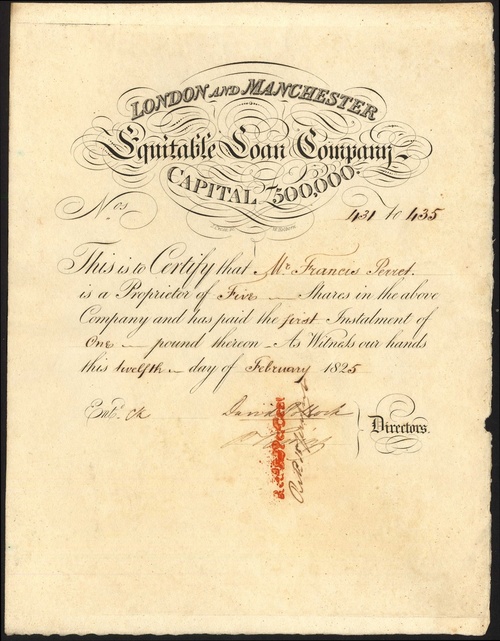 LONDON AND MANCHESTER
Equitable Loan Company
CAPITAL £500,000.
Nos. 431 to 435
This is to Certify that Mr. Francis Perret
is a Proprietor of Five Shares in the above
Company and has paid the first Instalment of
One pound thereon_As Witness our hands
this twelfth day of February 1825
Entd.
David Pollock
Directors.